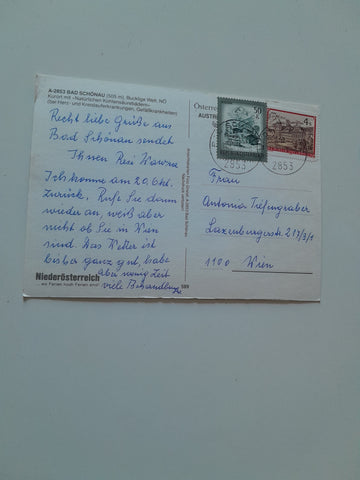 A-2853 BAD SCHÖNAU (505 m), Bucklige Welt, NÖ
Kurort mit »Natürlichen Kohlensäurebädern«
(bei Herz- und Kreislauferkrankungen, Gefäßkrankheiten)
Recht liebe Grüße aus
Bad Schönau sendet
Ihnen Resi Wawra
Ich komme am 20. Okt.
zurück. Rufe Sie dann
wieder an, weiß aber
nicht ob Sie in Wien
sind. Das Wetter ist
bisher ganz gut, habe
aber wenig Zeit
viele Behandlung
Niederösterreich
... wo Ferien noch Ferien sind!
Österreich
AUSTR
50
4
2853
2853
Frau
Antonia Tiefengraber
Laxenburgerstr. 217/9/1
1100 Wien